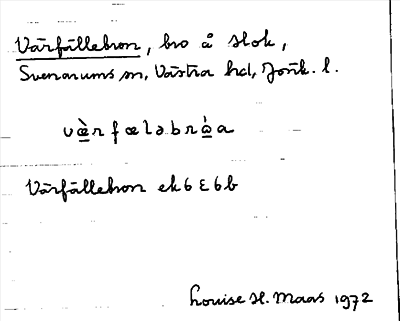 Värfällebron, bro å slok,
Svenarums sn, Västra hd, Jönk. l.
væ̀rfæləbrɷ̀a
Värfällebron ek 6 E 6 b
Louise H. Maas 1972